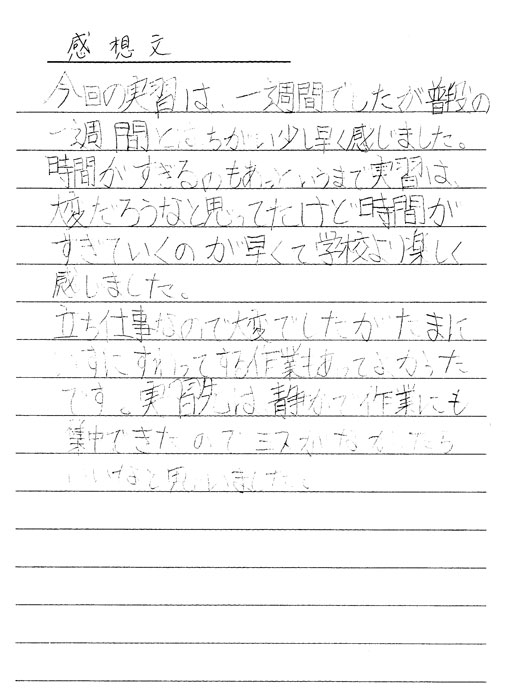 感想文
今回の実習は、一週間でしたが普段の
一週間とはちがい少し早く感じました。
時間がすぎるのもあっというまで実習は、
大変だろうなと思ってたけど時間が
すぎていくのが早くて学校より楽しく
感じました。
立ち仕事なので大変でしたがたまに
いすにすわってする作業もあってよかった
です。実習先は静かで作業にも
集中できたのでミスがなかったら
いいなと思いました。